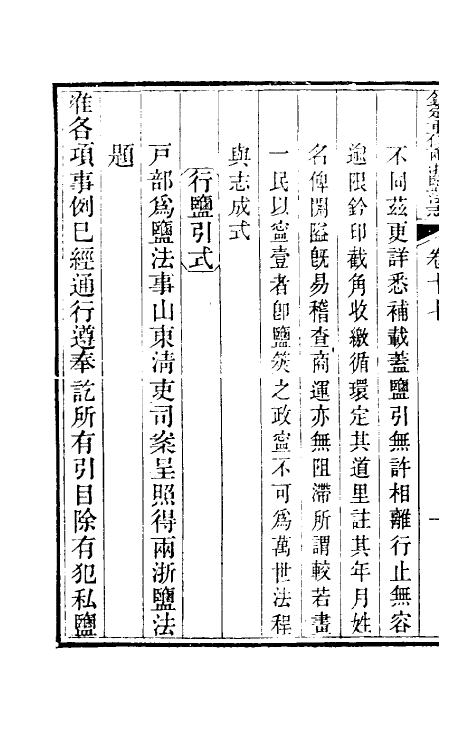 卷十七
不同茲更詳悉補載蓋鹽引無許相離行止無容
逾限鈐印截角收繳循環定其道里註其年月姓
名俾關隘旣易稽查商運亦無阻滯所謂較若畫
一民以寧壹者卽鹽筴之政寧不可爲萬世法程
與志成式
行鹽引式
戸部爲鹽法事山東淸吏司案呈照得兩浙鹽法
題
准各項事例已經通行遵奉訖所有引目除有犯私鹽